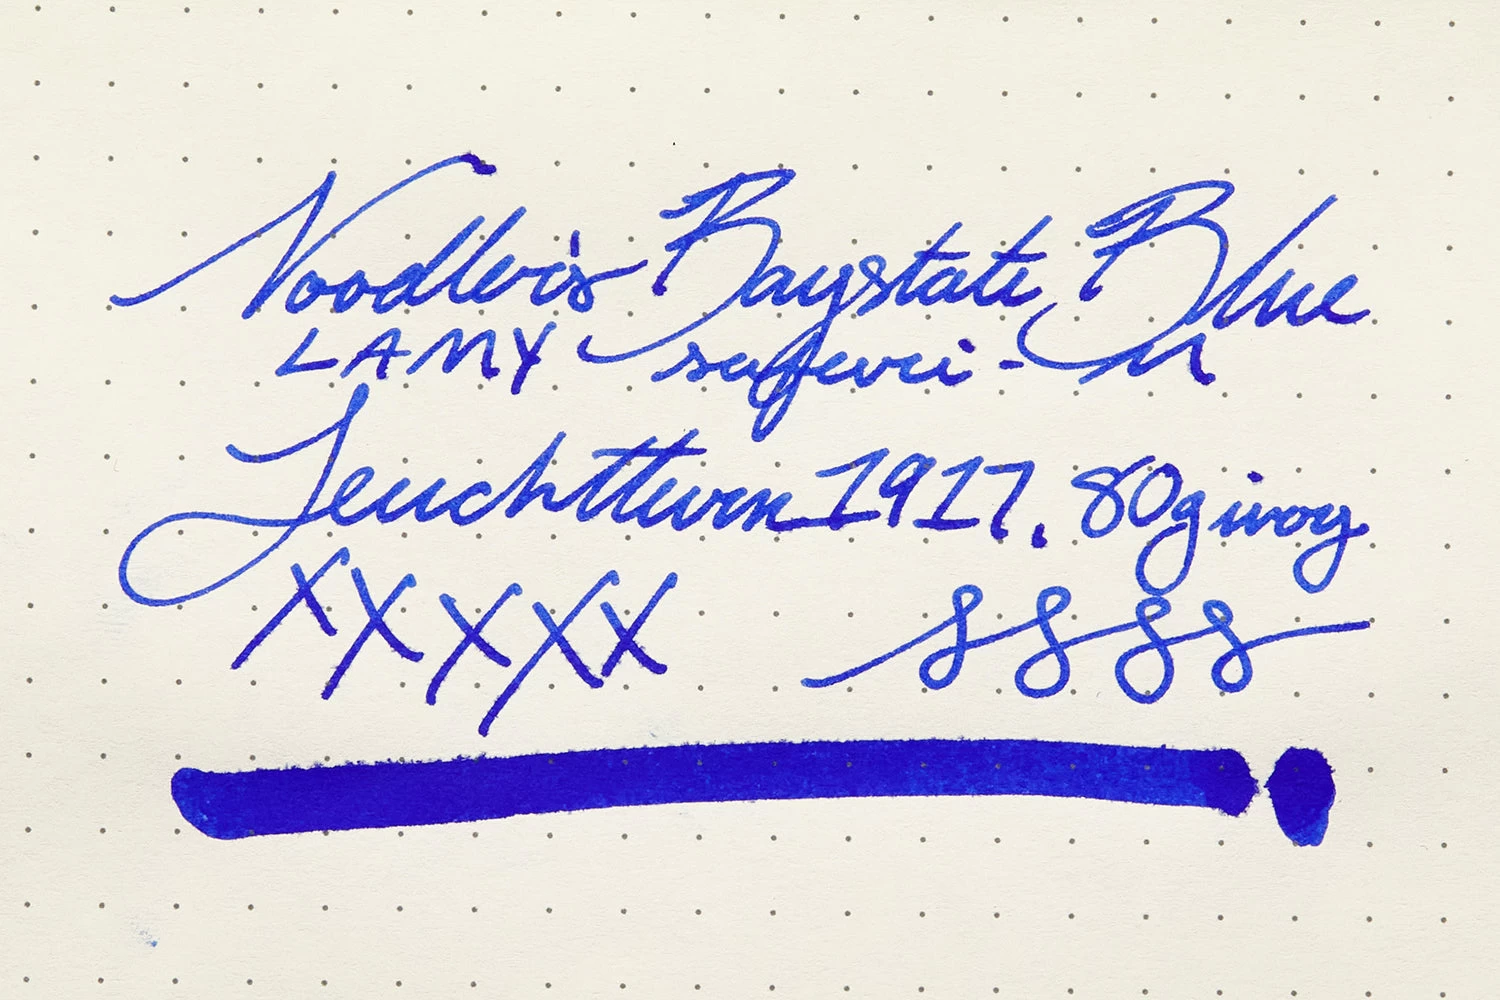 Noodler's Baystate Blue
LAMY safari - M
Leuchtturm 1917, 80g ivory
XXXXX 8888